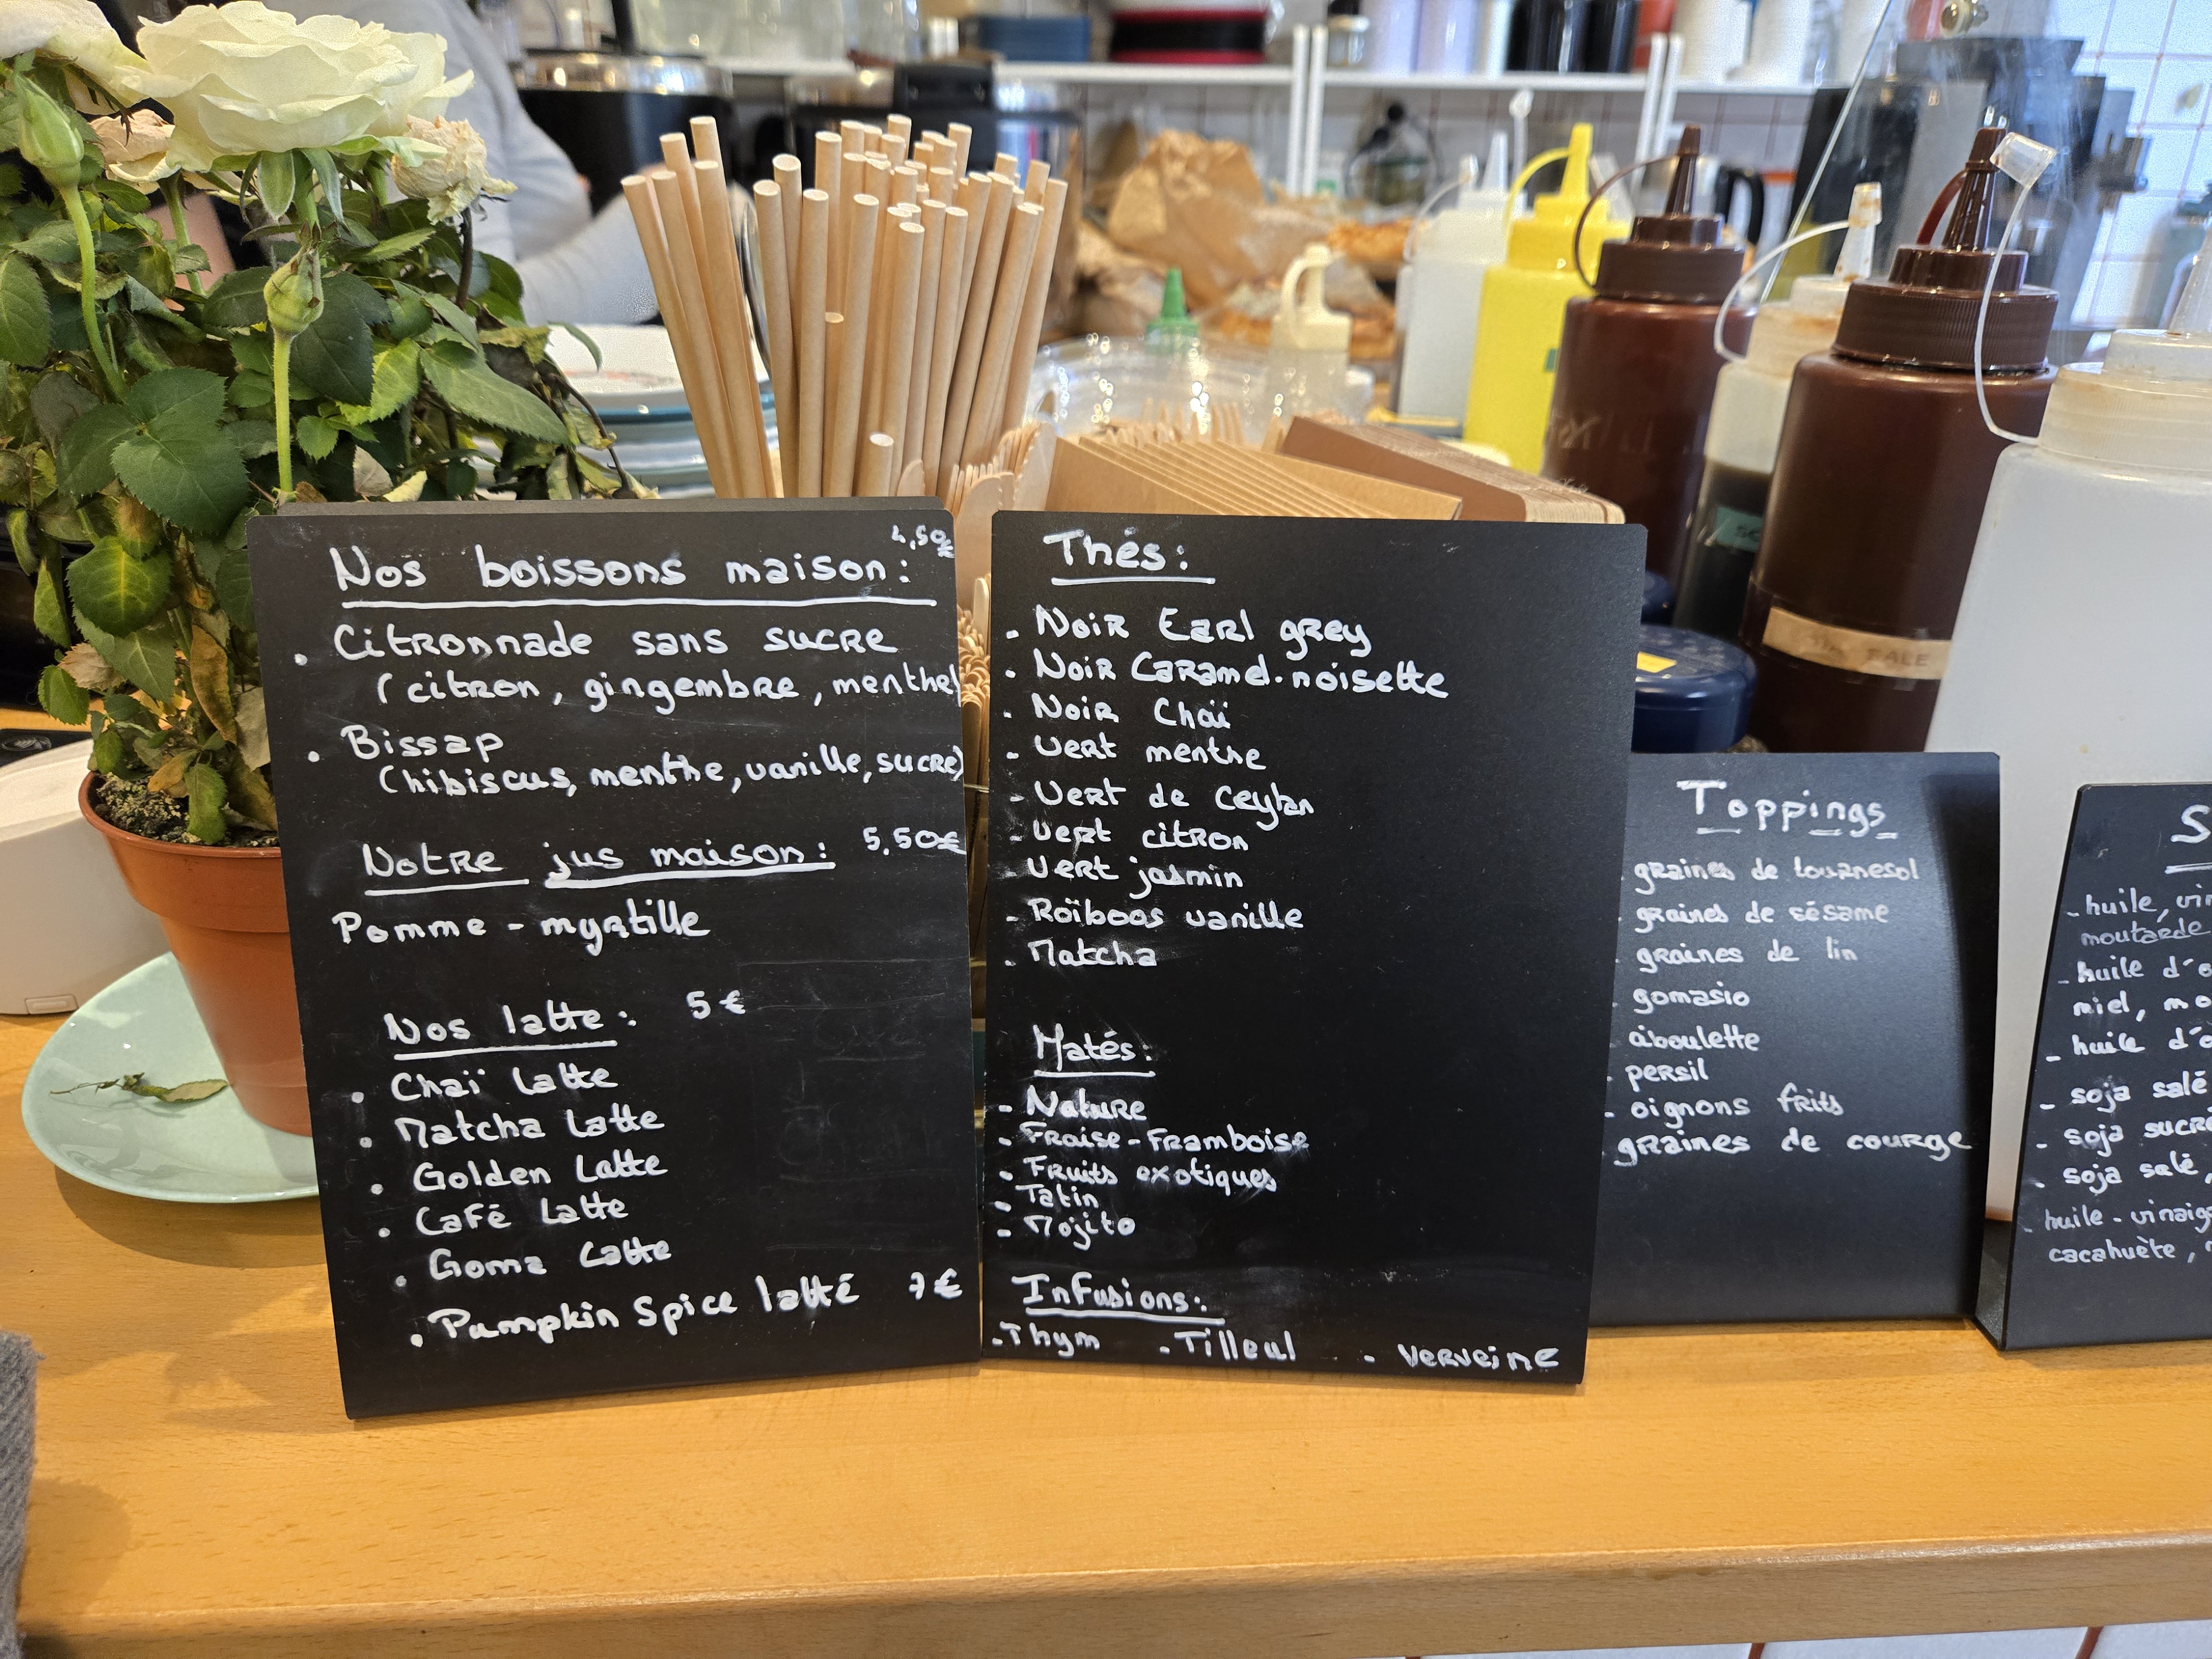 4,50€
Nos boissons maison:
. Citronnade sans sucre
(citron, gingembre, menthe)
. Bissap
(hibiscus, menthe, vanille, sucre)
Notre jus maison: 5,50€
Pomme - myrtille
Nos latte: 5€
. Chaï Latte
. Matcha Latte
. Golden Latte
. Café Latte
. Goma Latte
. Pumpkin Spice latté 7€
Thés:
- Noir Earl grey
- Noir Caramel-noisette
- Noir Chaï
- Vert menthe
- Vert de Ceylan
- Vert citron
- Vert jasmin
- Roïboos vanille
- Matcha
Matés:
- Nature
- Fraise-Framboise
- Fruits exotiques
- Tatin
- Mojito
Infusions:
- Thym - Tilleul - Verveine
Toppings
graines de tournesol
- graines de sésame
- graines de lin
- gomasio
- ciboulette
- persil
- oignons frits
graines de courge
S
- huile, vin
moutarde
- huile d'o
miel, mo
- huile d'o
- soja salé
- soja sucré
- soja salé,
- huile - vinaig
cacahuète,